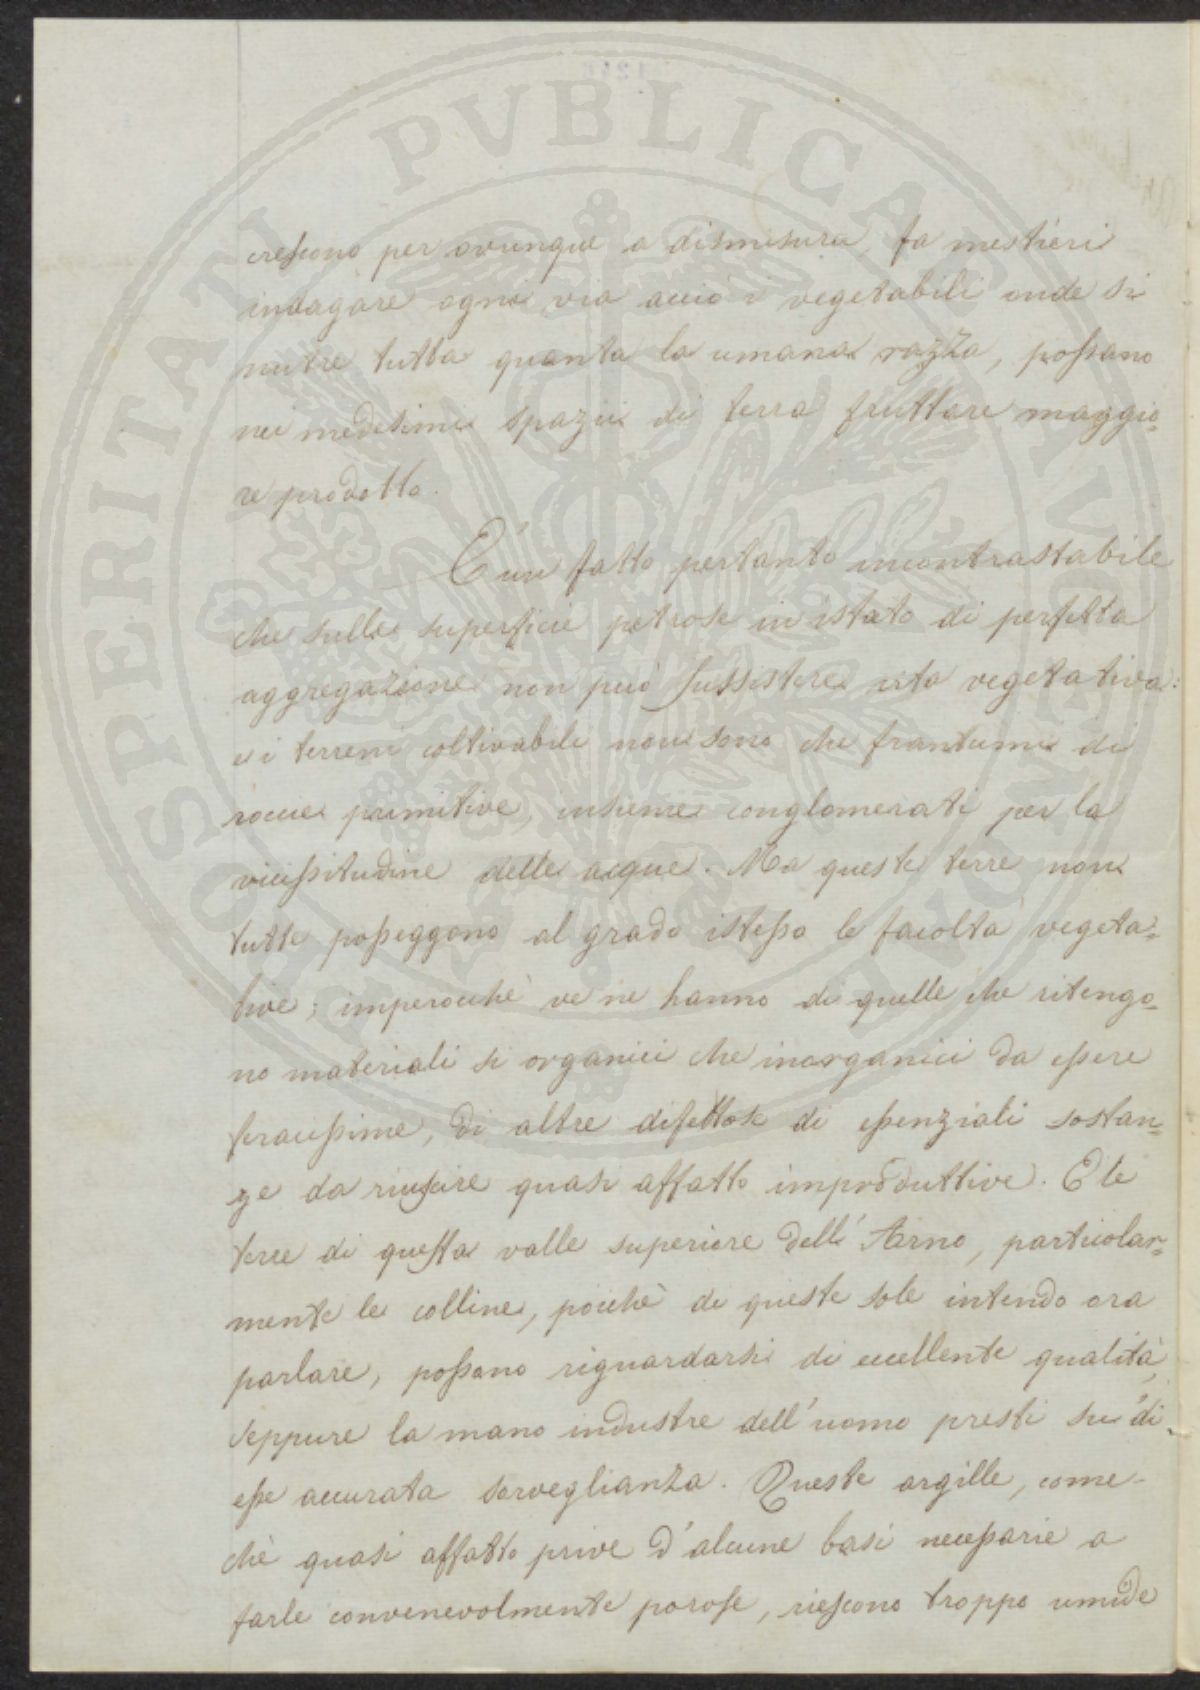 PROSPERITATI PVBLICAE AVGENDAE
crescono per ovunque a dismisura, fa mestieri
indagare ogni via acciò i vegetabili onde si
nutre tutta quanta la umana razza, possano
nei medesimi spazii di terra fruttare maggio=
re prodotto.
È un fatto pertanto incontrastabile
che sulle superficie petrose in istato di perfetta
aggregazione non può sussistere vita vegetativa:
e i terreni coltivabili non sono che frantumi di
roccie primitive, insieme conglomerati per la
vicissitudine delle acque. Ma queste terre non
tutte posseggono al grado istesso le facoltà vegeta=
tive; imperocchè ve ne hanno di quelle che ritengo=
no materiali sì organici che inorganici da essere
feracissime, di altre difettose di essenziali sostan=
ze da riuscire quasi affatto improduttive. E le
terre di questa valle superiore dell'Arno, particolar=
mente le colline, poichè di queste sole intendo ora
parlare, possono riguardarsi di eccellente qualità,
seppure la mano industre dell'uomo presti su di
esse accurata sorveglianza. Queste argille, come-
chè quasi affatto prive d'alcune basi necessarie a
farle convenevolmente porose, riescono troppo umide